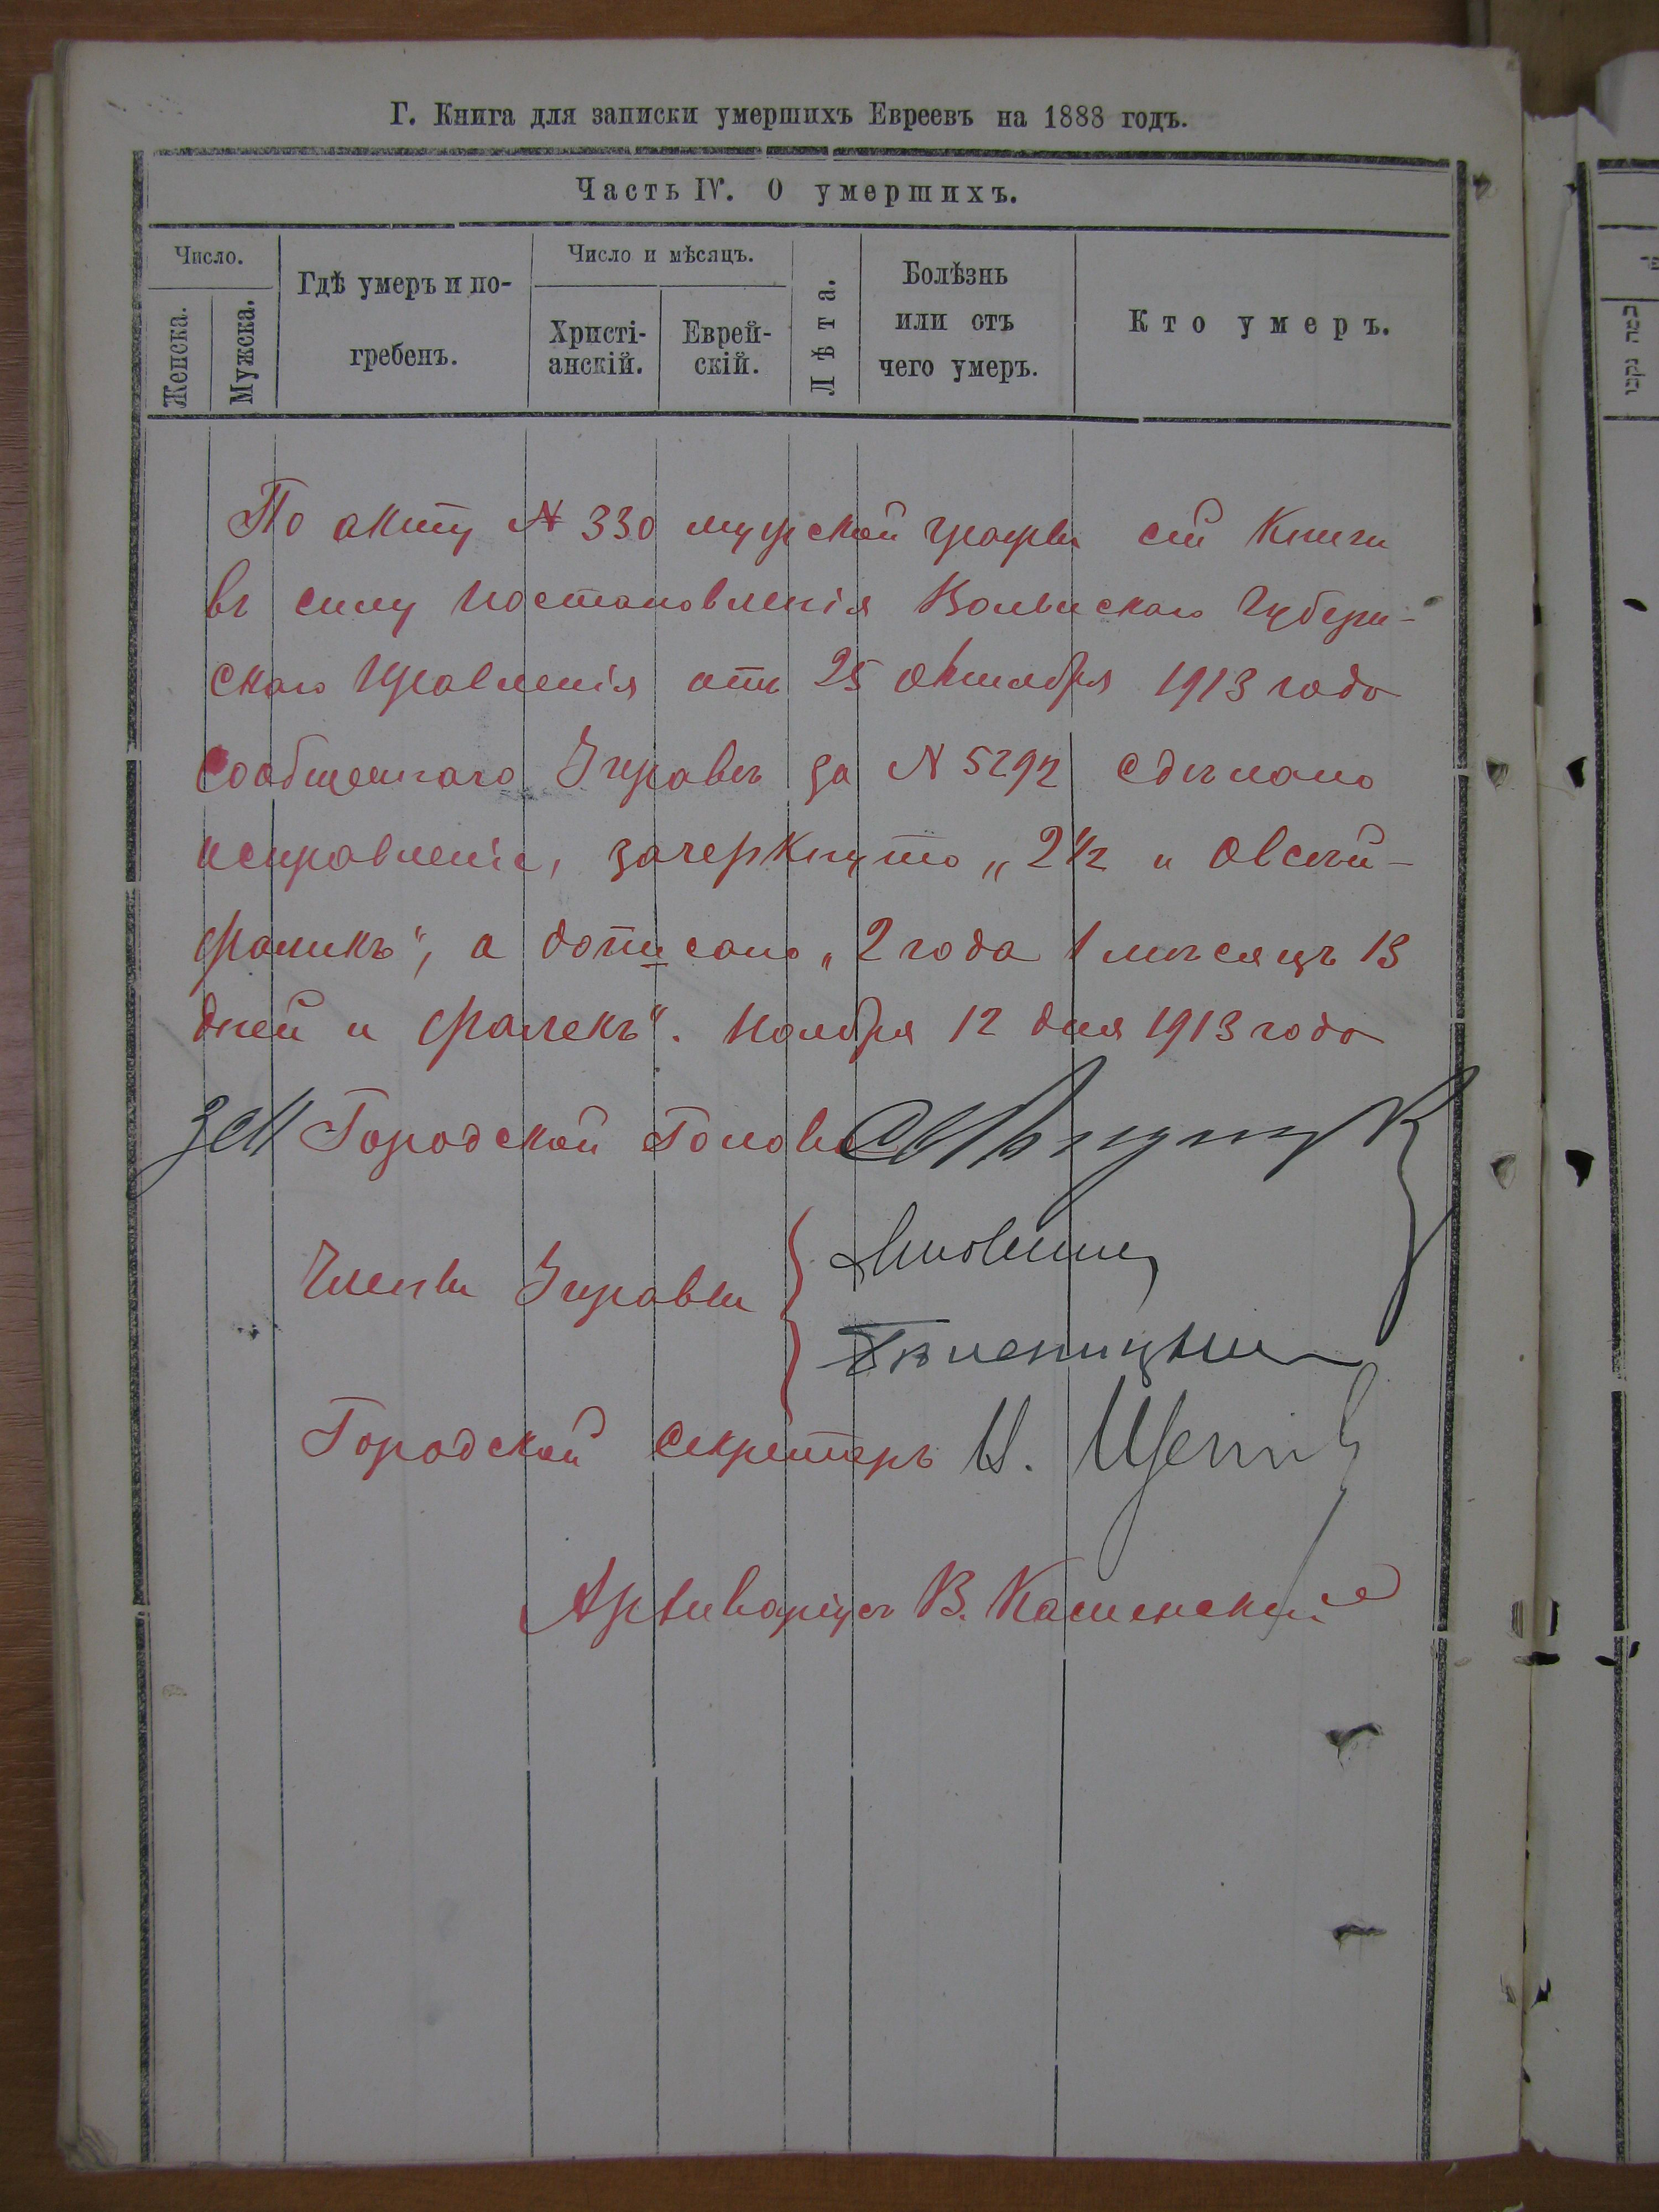 Г. Книга для записки умершихъ Евреевъ на 1888 годъ.
Часть IV. О умершихъ.
Число.
Женска.
Мужска.
Гдѣ умеръ и по-
гребенъ.
Число и мѣсяцъ.
Христі-
анскій.
Еврей-
скій.
Лѣта.
Болѣзнь
или отъ
чего умеръ.
Кто умеръ.
По акту № 330 мужской графы сей Книги
въ силу постановленія Волынскаго Губерн-
скаго Правленія отъ 25 октября 1913 года
сообщеннаго Управѣ за № 5292 сдѣлано
исправленіе, зачеркнуто „2½ и Овсей-
Фаликъ", а дописано „2 года 1 мѣсяцъ 13
дней и Фалекъ". Ноября 12 дня 1913 года
Городской Голова
Члены Управы
Городской Секретарь И.
Архиваріусъ В. Каменскій